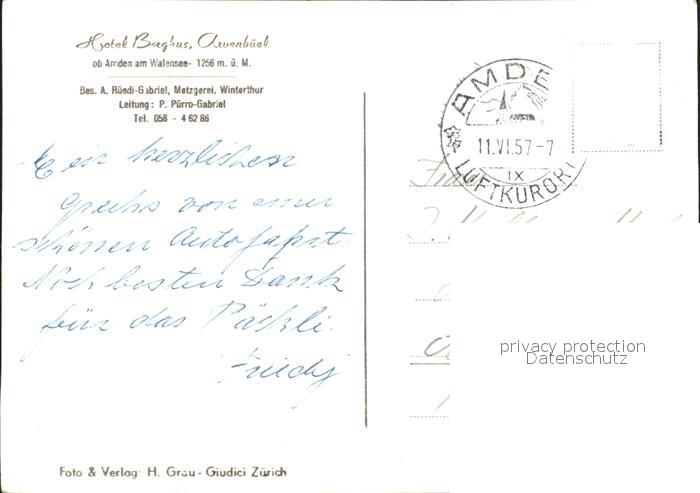 Hotel Berghus, Arvenbüel
ob Amden am Walensee - 1256 m. ü. M.
Bes. A. Rüedi-Gabriel, Metzgerei, Winterthur
Leitung: P. Pürro-Gabriel
Tel. 058 - 4 62 86
Ein herzlichen
Gruss von einer
schönen Autofahrt.
Noch besten Dank
für das Päckli.
Friedy
AMDEN
11.VI.57-7
IX
LUFTKURORT
privacy protection
Datenschutz
Foto & Verlag: H. Grau - Giudici Zürich